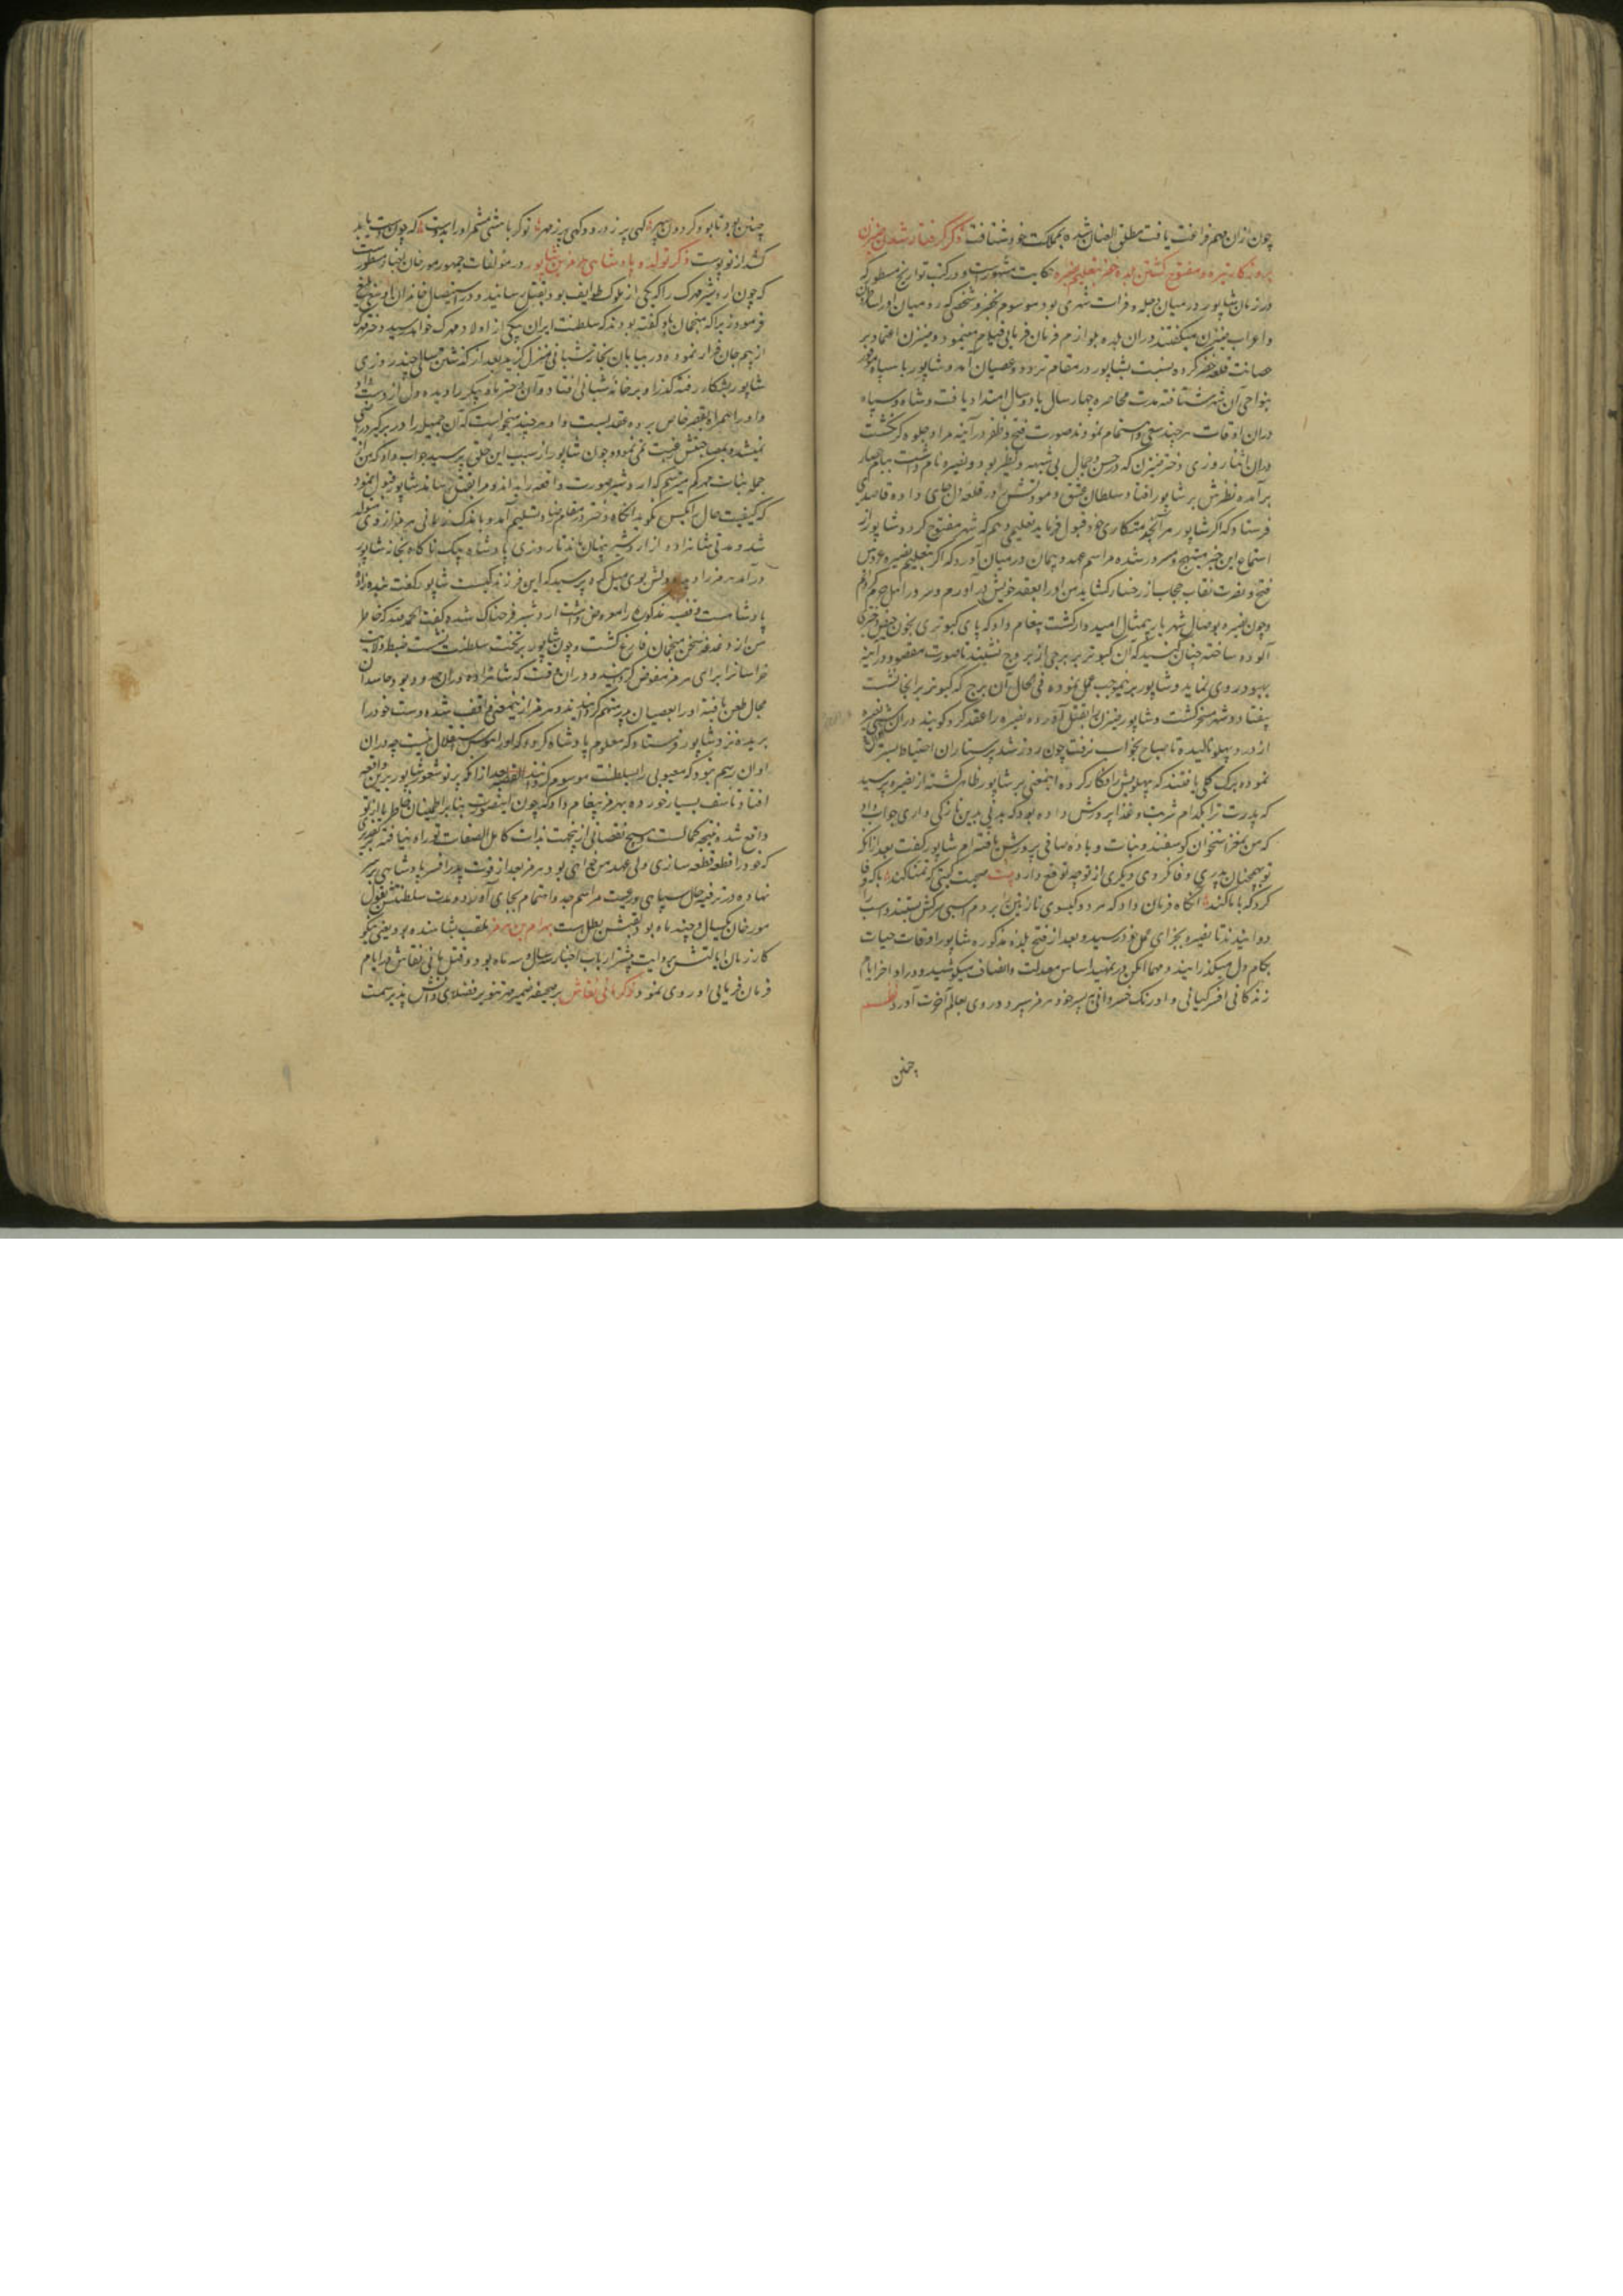 چون ازان مهم فراغت یافت مطلق العنان شده بمملکت خود شتافت ذکر گرفتار شدن ضیزن
بروزگار تیره و مفتوح گشتن بلده حضر بتعلیم نضیره حکایت مشهورست و در کتب تواریخ مسطور که
در زمان شاپور در میان دجله و فرات شهری بود موسوم بحضر و شخصی که رومیان اورا ساطرون
و اعراب ضیزن میگفتند دران بلده بلوازم فرمان فرمایی قیام مینمود و ضیزن اعتماد بر
حصانت قلعه حضر کرده نسبت بشاپور در مقام تردد و عصیان آمد و شاپور با سپاه موفور
بنواحی آن شهر شتافته مدت محاصره چهار سال یا دو سال امتداد یافت و شاه و سپاه
دران اوقات هرچند سعی و اهتمام نمودند صورت فتح و ظفر در آینه مراد جلوه گر نگشت
دران اثنا روزی دختر ضیزن که در حسن و جمال بی شبه و نظیر بود و نضیره نام داشت ببام حصار
برآمده نظرش بر شاپور افتاد و سلطان عشق و مودتش در قلعه دل جای داده قاصدی
فرستاد که اگر شاپور مرا بخدمتکاری خود قبول فرماید تعلیمی دهم که شهر مفتوح گردد و شاپور از
استماع این خبر مبتهج و مسرور شده مراسم عهد و پیمان در میان آورد که اگر بتعلیم نضیره عروس
فتح و نصرت نقاب حجاب از رخسار گشاید من اورا بعقد خویش درآورم و سرور اهل حرم گردانم
و چون نضیره بوصال شهریار بیمثال امیدوار گشت پیغام داد که پای کبوتری بخون حیض دختری
آلوده ساخته چنان کنید که آن کبوتر بر برجی از بروج نشیند تا صورت مقصود در آینه
بهبود روی نماید و شاپور بر نیموجب عمل نموده فی الحال آن برج که کبوتر برانجا نشست
بیفتاد و شهر مسخر گشت و شاپور ضیزن را بقتل آورده نضیره را عقد کرد گویند دران شبی نضیره
از درد پهلو نالیده تا صباح بخواب نرفت چون روز شد پرستاران احتیاط بستر
نموده برک گلی یافتند که پهلویش افکار کرده اینمعنی بر شاپور ظاهر گشته از نضیره پرسید
که پدرت ترا بکدام شربت و غذا پرورش داده بود که بدنی بدین نازکی داری جواب داد
که من بمغز استخوان گوسفند و نبات و باده صافی پرورش یافته ام شاپور گفت بعد ازانکه
تو بچنان پدری وفا نکردی دیگری از تو چه توقع دارد بیت صحبت گیتی که تمنا کند با که وفا
کرد که با ما کند انگاه فرمان داد که مردو گیسوی نازنین را بر دم اسبی سرکش بستند و اسب را
دوانیدند تا نضیره بجزای عمل خود رسید و بعد از فتح بلده مذکوره شاپور اوقات حیات
بکام دل میگذرانید و مهما امکن در تمهید اساس معدلت و انصاف میکوشید و در اواخر ایام
زندگانی افسر کیانی و اورنک خسروانی به پسر خود هرمز سپرد و روی بعالم آخرت آورد نظم
چنین
چنین بود تا بود گردون سپهر گهی پر ز درد و گهی پر ز مهر تو گر باهشی مشمر اورا بدوست که چون دست یابد
کشد از تو پوست ذکر تولد و پادشاهی هرمز بن شاپور در مؤلفات جمهور مورخان اخبار مسطورست
که چون اردشیر مهرک را که یکی از ملوک طوایف بود بقتل رسانید و در استیصال خاندان او سعی بلیغ
فرمود زیرا که منجمان باو گفته بودند که سلطنت ایران بیکی از اولاد مهرک خواهد رسید و دختر مهرک
از بیم جان فرار نموده در بیابان بخانه شبانی منزل گزید بعد از گذشتن سالی چند روزی
شاپور بشکار رفته گذر او بر خانه شبانی افتاد و آن دختر ماه پیکر را دیده دل از دست داد
و اورا همراه بقصر خاص برده عقد بست و او هرچند میخواست که آن جمیله را در بر گیرد راضی
نمیشد و بمصاحبتش رغبت نمی نمود و چون شاپور از سبب این خلق پرسید جواب داد که من از
جمله بنات مهرکم میترسم که اردشیر صورت واقعه را بداند و مرا بقتل رساند شاپور قبول نمود
که کیفیت حال با کس نگوید انگاه دختر در مقام رضا و تسلیم آمد و باندک زمانی هرمز ازو متولد
شد و مدتی شاهزاده از اردشیر پنهان ماند تا روزی پادشاه بیک ناگاه بخانه شاپور
درآمد هرمز را دیده دلش بوی میل کرده پرسید که این فرزند کیست شاپور گفت بنده زاده
پادشاهست و قضیه مذکوره را معروض داشت اردشیر فرحناک شده گفت الحمدلله که خاطر
من از دغدغه سخن منجمان فارغ گشت و چون شاپور بر تخت سلطنت نشست ضبط ولایت
خراسانرا برای هرمز مفوض گردانید و دران وقت که شاهزاده دران حدود بود حاسدان
مجال طعن یافته اورا بعصیان پدر متهم گردانیدند و هرمز ازینمعنی واقف شده دست خودرا
بریده نزد شاپور فرستاد که معلوم پادشاه گردد که اورا هوس استقلال نیست چه دران
اوان رسم نبود که معیوبی را بسلطنت موسوم گردانند القصه بعد ازانکه پرتو شعور شاپور برین واقعه
افتاد تاسف بسیار خورده بهرمز پیغام داد که چون اینصورت بنابر اطمینان خاطر ما از تو
واقع شده و نتیجه کمالست هیچ نقصانی ازینجهت بذات کامل الصفات تو راه نیافته بتقدیری
که خودرا قطعه قطعه سازی ولی عهد من خواهی بود و هرمز بعد از فوت پدر افسر پادشاهی بر سر
نهاده در ترفیه حال سپاهی و رعیت مراسم جد و اهتمام بجای آورد و مدت سلطنتش بقول
مورخان یکسال و چند ماه بود لقبش بطل است بهرام بن هرمز ملقب بشاهنده بود یعنی نیکو
کار زمان ایالتش بروایت بیشتر ارباب اخبار سه سال و سه ماه بود و قتل مانی نقاش در ایام
فرمان فرمایی او روی نمود ذکر مانی نقاش بر صحیفه ضمیر مهر تنویر فضلای دانش پذیر سمت